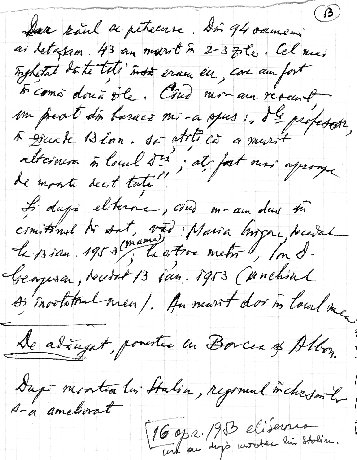 13
răul se petrecuse. Din 94 oameni
ai detașam. 43 au murit în 2-3 zile. Cel mai
înghețat dintre toți eram eu, care am fost
în comă două zile. Când mi-am revenit,
un preot din baracă mi-a spus: "Dle profesor,
în ziua de 13 ian. să știți că a murit
altcineva în locul Dv; ați fost mai aproape
de moarte decât toți".
Și după eliberare, când m-am dus în
cimitirul din sat, văd Maria decedat
la 13 ian. 1953 (mama), la metri, Ion D.
Georgescu, decedat 13 ian. 1953 (unchiul
și învățătorul meu). Au murit doi în locul meu
De adăugat, povestea cu Borcea și
După moartea lui Stalin, regimul închisorilor
s-a ameliorat
16 apr. 1953 eliberarea
după moartea lui Stalin.